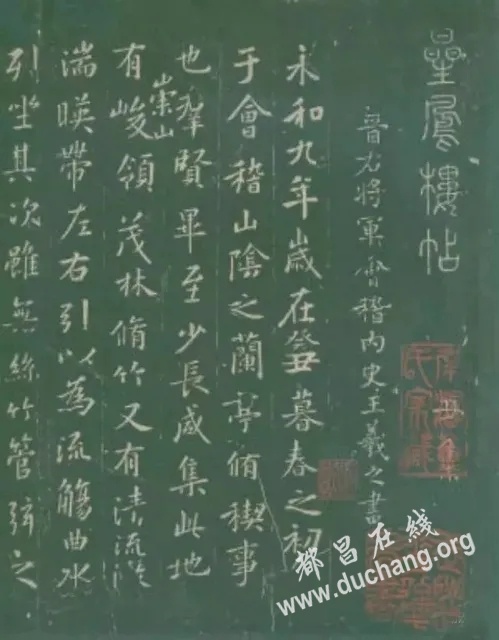 星鳳樓帖
晉右將軍會稽內史王羲之書
永和九年歲在癸丑暮春之初
于會稽山陰之蘭亭脩稧事
也羣賢畢至少長咸集此地
有崇山峻領茂林脩竹又有清流激
湍暎帶左右引以為流觴曲水
列坐其次雖無絲竹管弦之
都昌在线
www.duchang.org